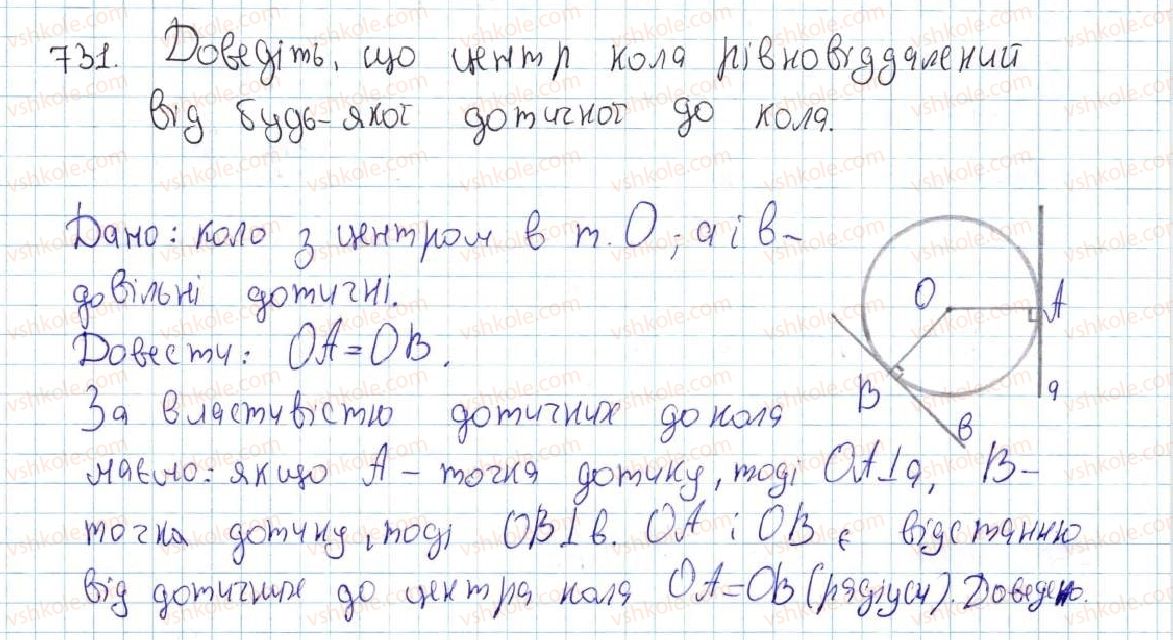 731. Доведіть, що центр кола рівновіддалений
від будь-якої дотичної до кола.
Дано: коло з центром в т. О; а і в -
довільні дотичні.
Довести: ОА = ОВ.
За властивістю дотичних до кола
маємо: якщо А - точка дотику, тоді ОА⊥а, В -
точка дотику, тоді ОВ⊥в. ОА і ОВ є відстанню
від дотичних до центра кола ОА=ОВ (радіуси). Доведено.
О
А
В
а
в
vshkole.com